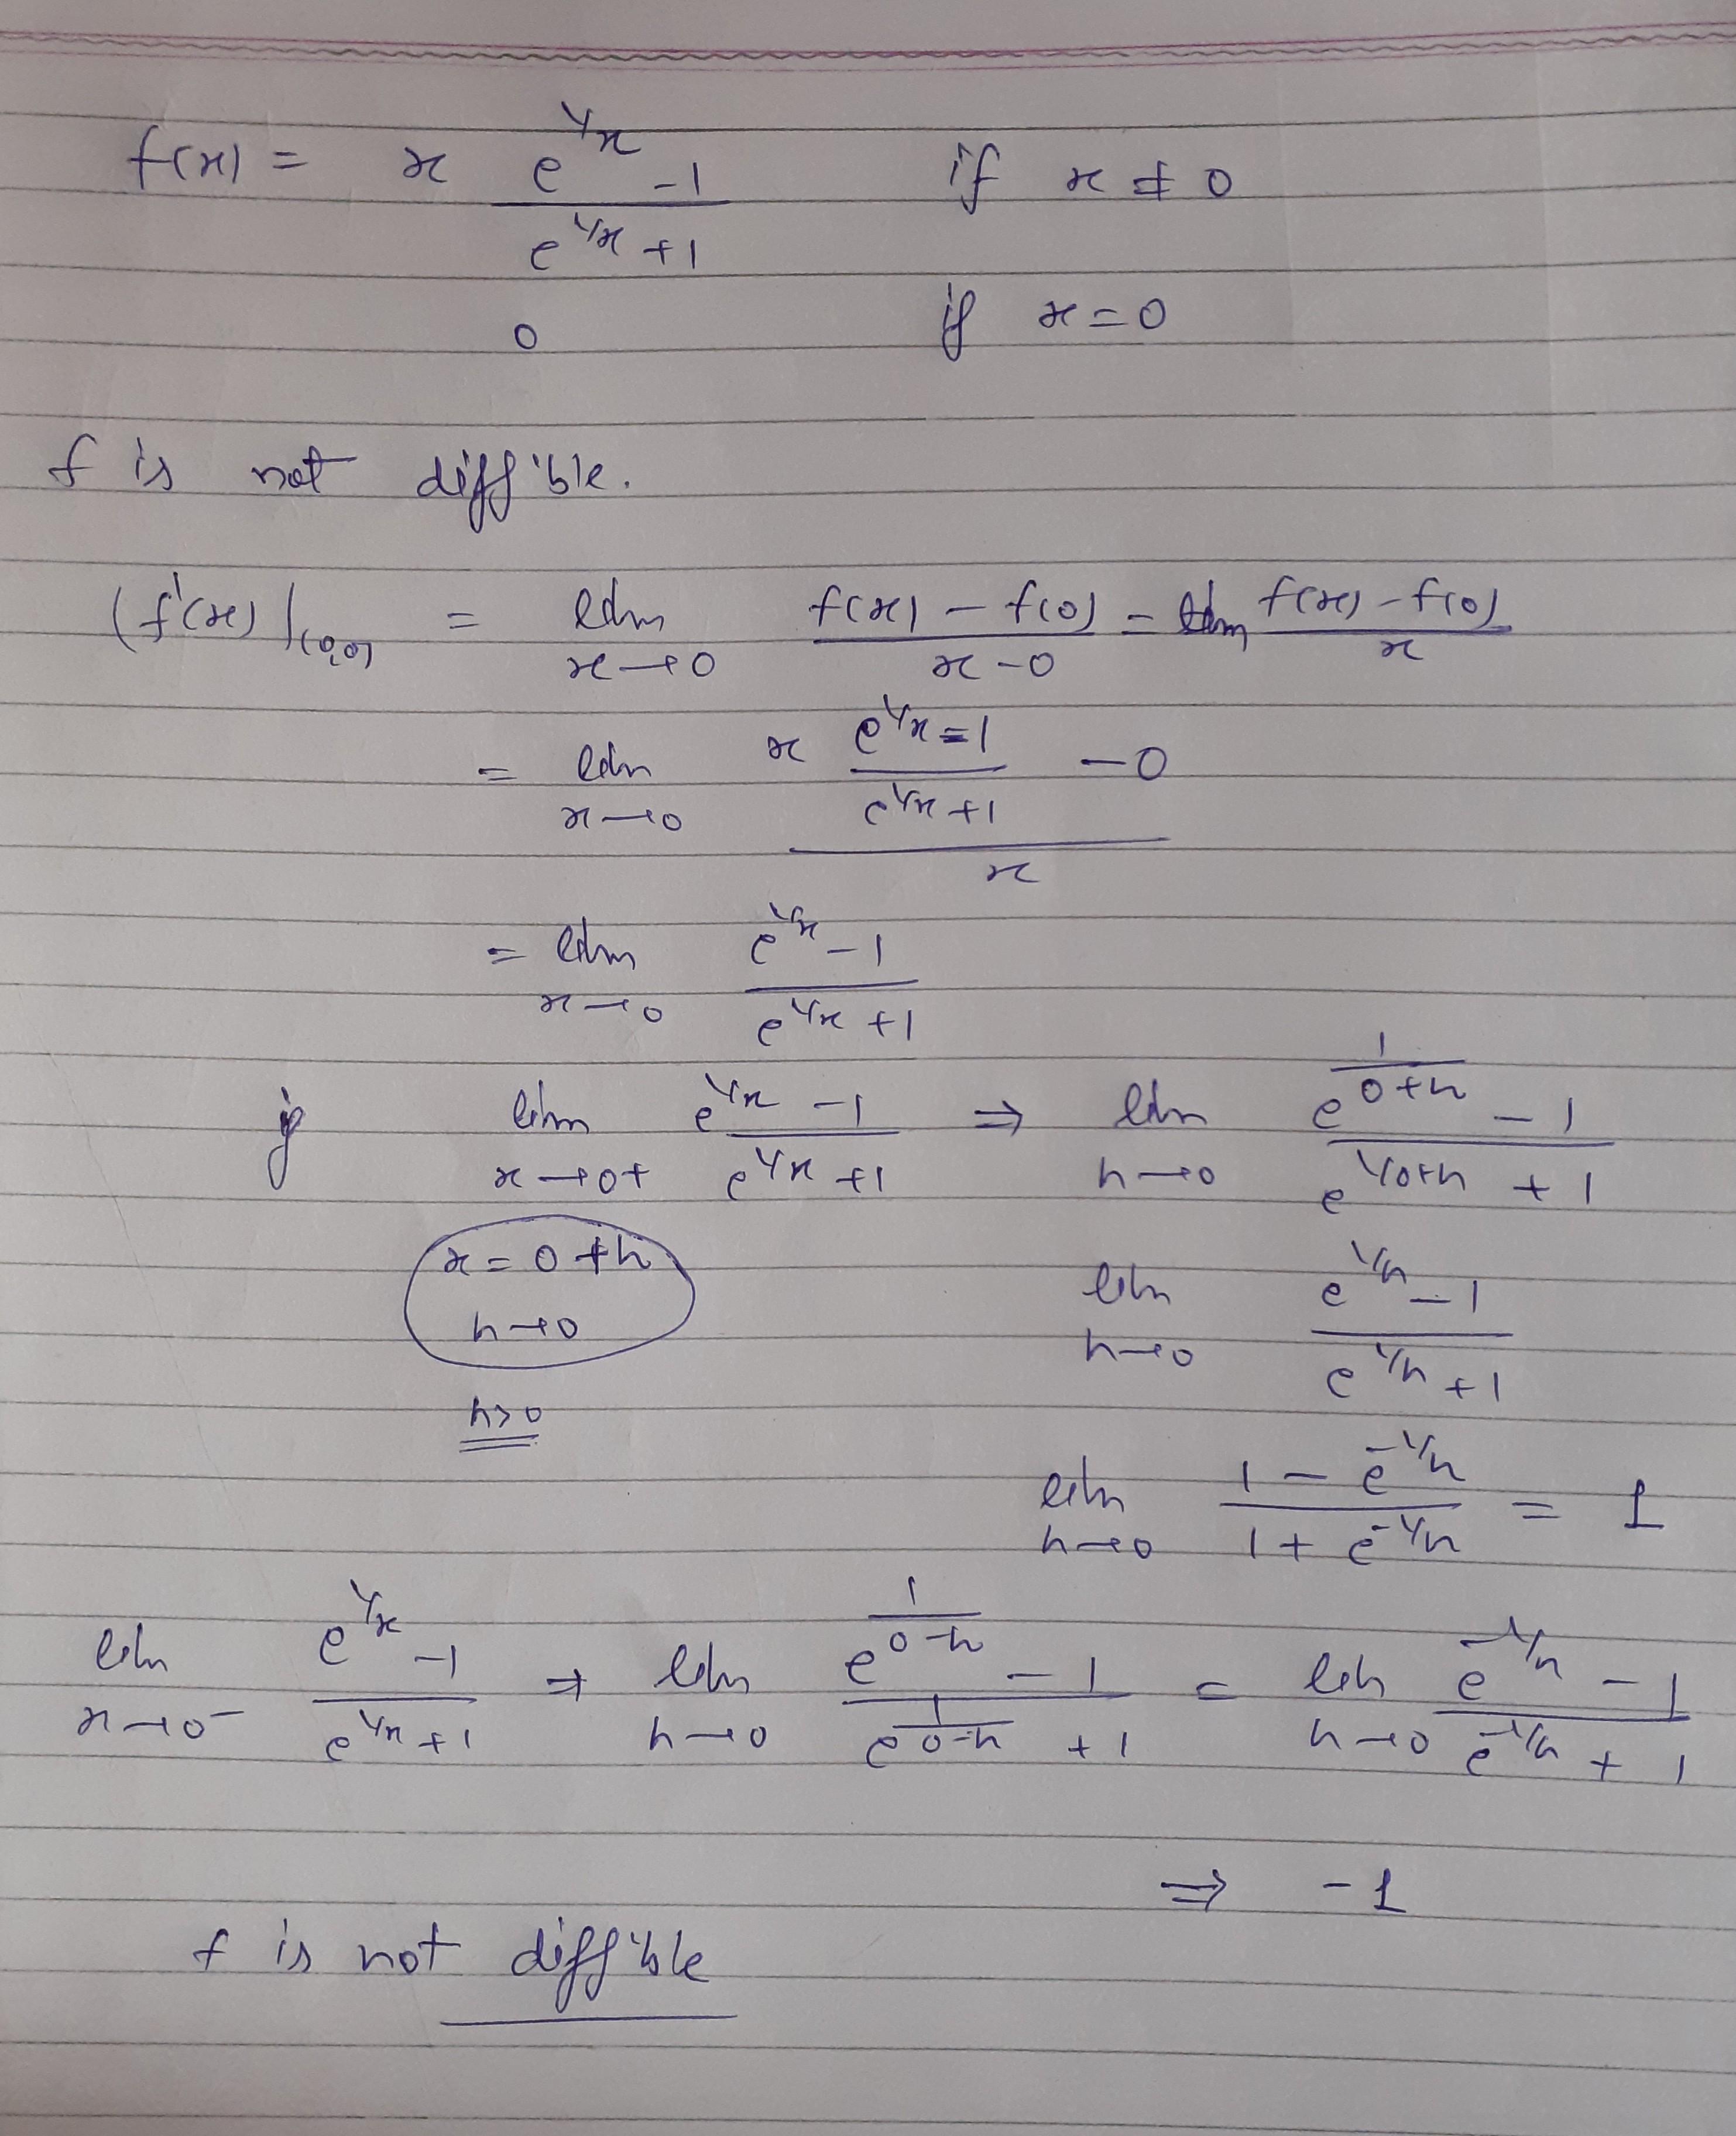 f(x) = x (e^{1/x} - 1)/(e^{1/x} + 1) if x ≠ 0
0 if x = 0
f is not diff'ble.
(f'(x)|_{(0,0)} = lim_{x→0} (f(x) - f(0))/(x - 0) = lim (f(x) - f(0))/x
= lim_{x→0} (x (e^{1/x} - 1)/(e^{1/x} + 1) - 0)/x
= lim_{x→0} (e^{1/x} - 1)/(e^{1/x} + 1)
if lim_{x→0+} (e^{1/x} - 1)/(e^{1/x} + 1) ⇒ lim_{h→0} (e^{1/(0+h)} - 1)/(e^{1/0+h} + 1)
x = 0 + h
h→0
lim_{h→0} (e^{1/h} - 1)/(e^{1/h} + 1)
h>0
lim_{h→0} (1 - e^{-1/h})/(1 + e^{-1/h}) = 1
lim_{x→0-} (e^{1/x} - 1)/(e^{1/x} + 1) ⇒ lim_{h→0} (e^{1/(0-h)} - 1)/(e^{1/(0-h)} + 1) = lim_{h→0} (e^{-1/h} - 1)/(e^{-1/h} + 1)
⇒ -1
f is not diff'ble